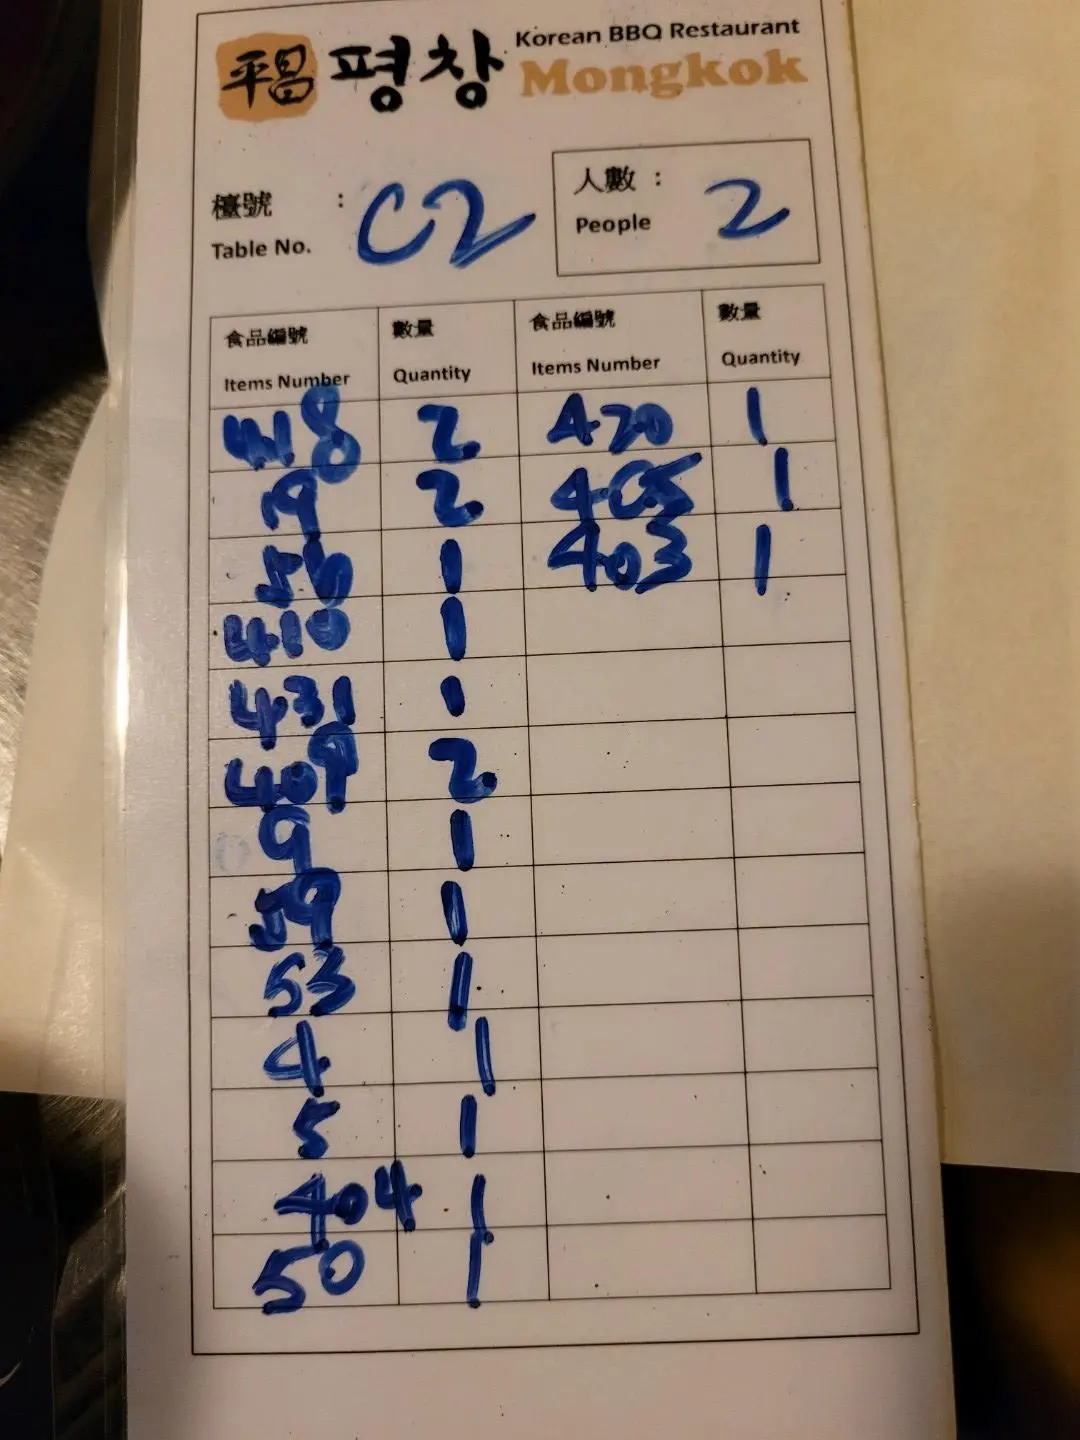 平昌 평창 Korean BBQ Restaurant
Mongkok
檯號 : C2 人數 : 2
Table No. People
食品編號 數量 食品編號 數量
Items Number Quantity Items Number Quantity
418 2 420 1
19 2 405 1
56 1 403 1
410 1
431 1
409 2
9 1
59 1
53 1
4 1
5 1
404 1
50 1